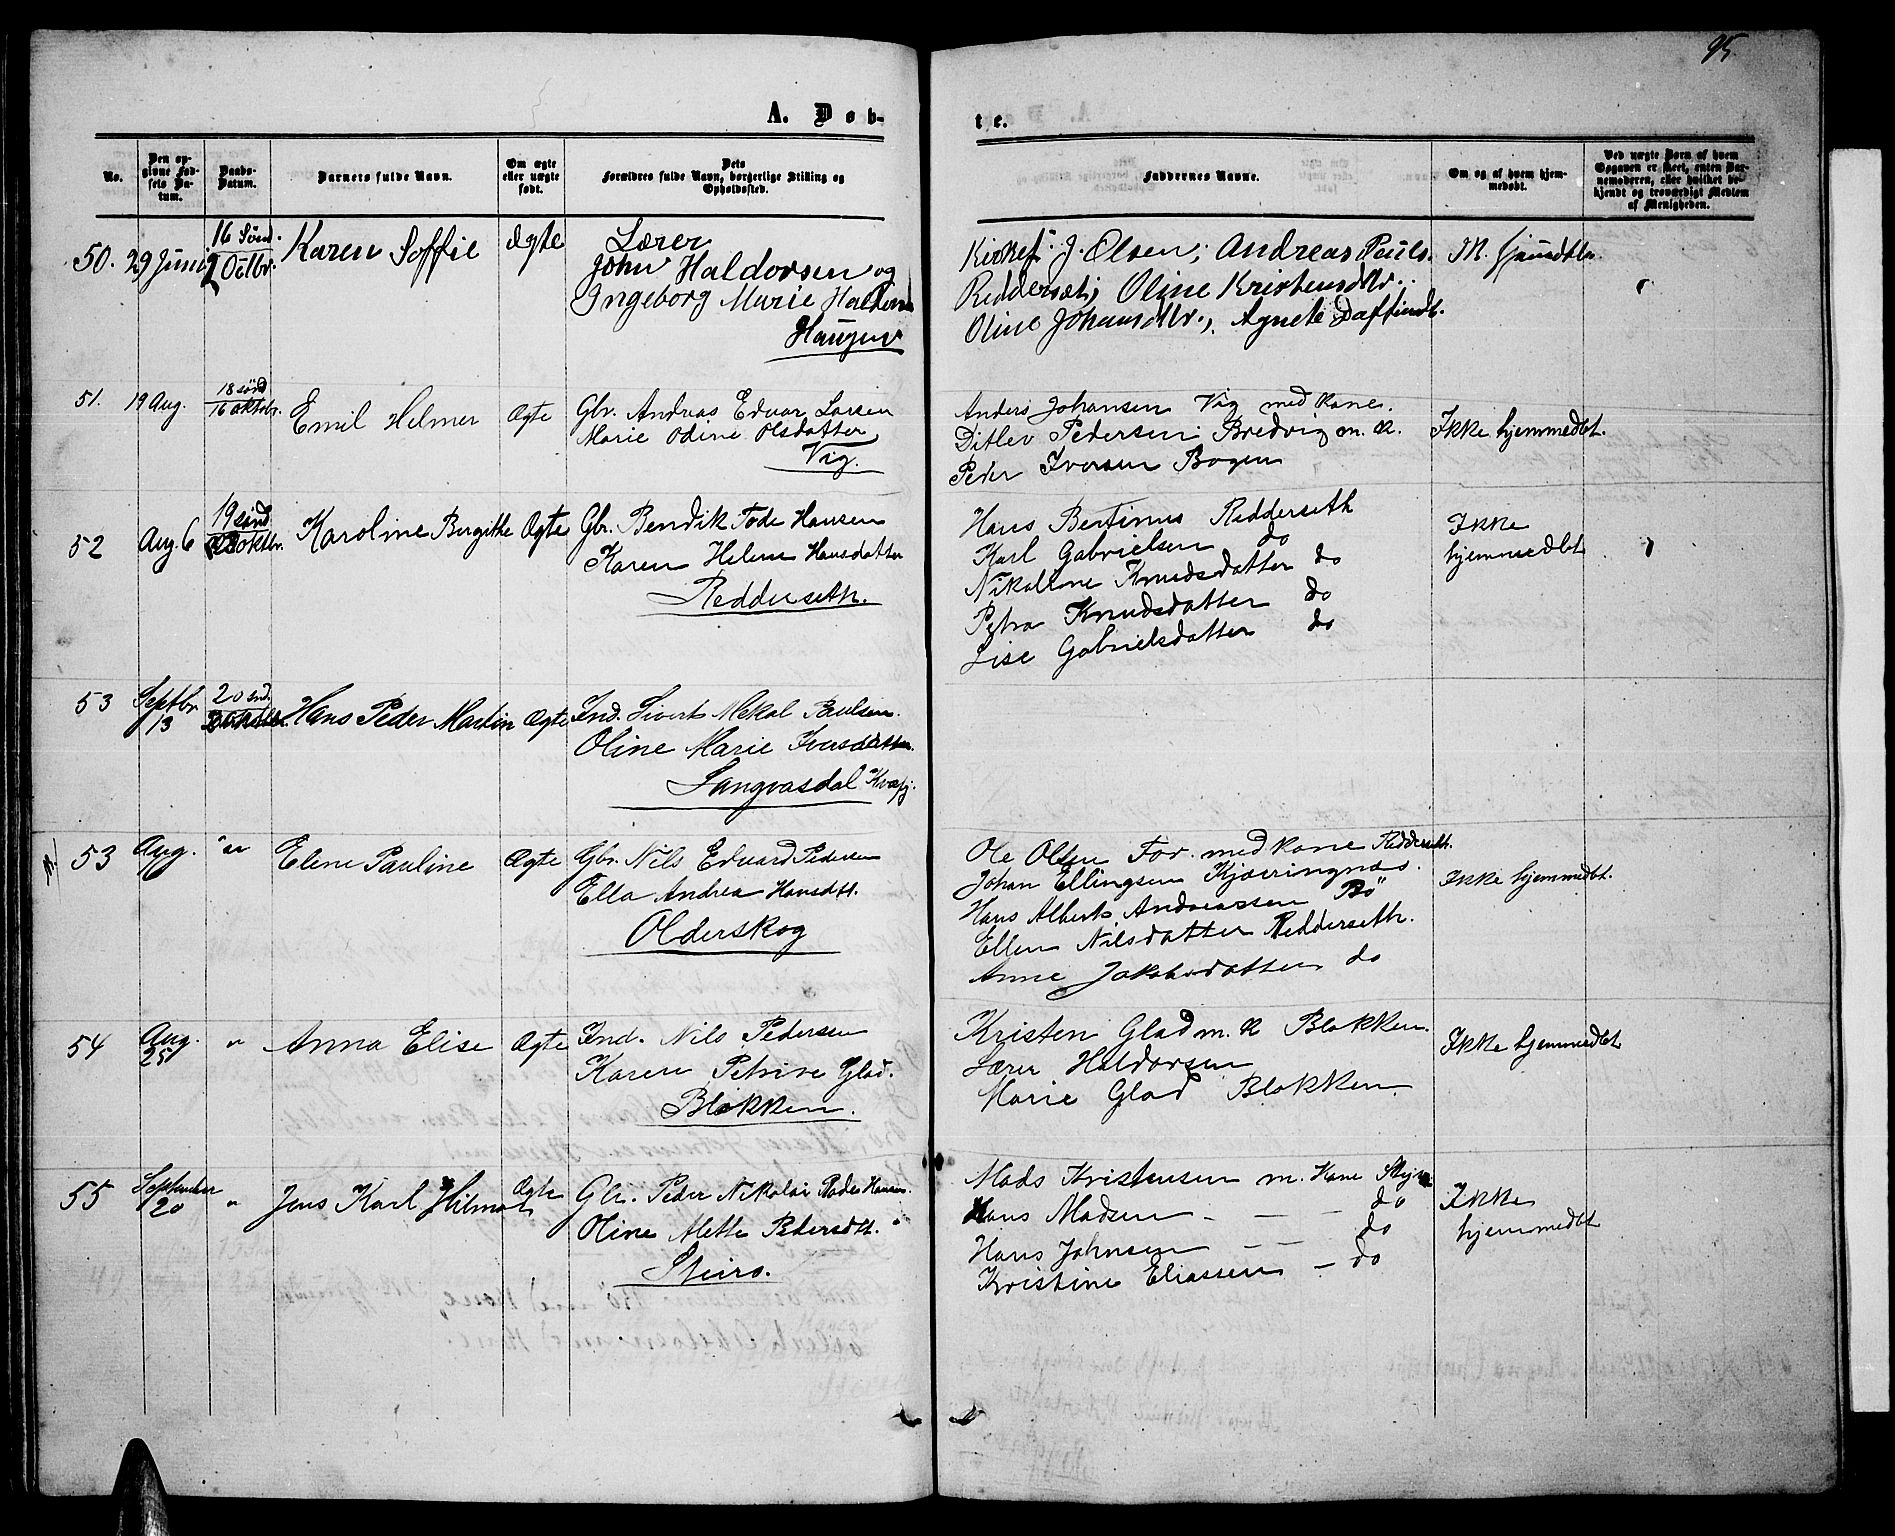 95.
A. Døb-
te.
No.
Den op-
givne Fød-
sels Da-
tum.
Daabs-
Datum.
Barnets fulde Navn.
Om ægte
eller uægte
født.
Dets
Forældres fulde Navn, borgerlige Stilling og
Opholdssted.
Faddernes Navne.
Om og af hvem hjem-
medøbt.
Ved uægte Børn af hvem
Opgaven er skeet, enten Bar-
nemoderen, eller hvilket be-
kjendt og troværdigt Medlem
af Menigheden.
50. 29 Juni
16 Sønd.
2 Octbr.
Karen Soffie
Ægte
Lærer
John Haldorsen og
Ingeborg Marie
Haugen
J. Olsen; Andreas Pauls.
Reddersæt; Oline Kristensdtr.;
Oline Johansdtr.;
51. 19 Aug.
18 sønd
16 oktobr.
Emil Helmer
Ægte
Gbr. Andreas Edvar Larsen
Marie Odine Olsdatter
Vig.
Anders Johansen Vig med kone.
Ditlev Pedersen Bredvig m. K.
Peder Iversen Bogen
Ikke hjemmedbt.
52 Aug. 6
19 sønd
oktbr.
Karoline Bergithe
Ægte
Gbr. Bendik Tode Hansen
Karen Helene Hansdatter
Reddersæth.
Hans Bertinus Redderseth
Karl Gabrielsen do
Nikoline Knudsdatter do
Petra Knudsdatter do
Lise Gabrielsdatter do
Ikke
hjemmedbt
53 Septbr
13
20 snd.
Hans Peder Martin
Ægte
Ind. Sivert Mekal Paulsen.
Oline Marie Iversdatter.
Langvasdal Kvæfj.
53 Aug.
"
Elene Pauline
Ægte
Gbr. Nils Edvard Pedersen
Ella Andrea Hansdtt.
Olderskog
Ole Olsen For. med kone Redderseth.
Johan Ellingsen Kjæringnæs.
Hans Albert Andreassen Bö
Ellen Nilsdatter Redderseth.
Anne Jakobsdatter do
Ikke hjemmedbt.
54 Aug.
25
"
Anna Elise
Ægte
Ind. Nils Pedersen
Karen Petrine Glad.
Blokken.
Kristen Glad m. K Blokken.
Lærer Haldorsen
Marie Glad Blokken
Ikke hjemmedbt
55 September
20
"
Jens Karl Hilmar
Ægte
Gbr. Peder Nikolai Hansen.
Oline Mette Pedersdtt.
Steiro.
Mads Kristensen m. Kone
Hans Madsen - - - do
Hans Johnsen - - do
Kristine Eliassen - do
Ikke
hjemmedbt